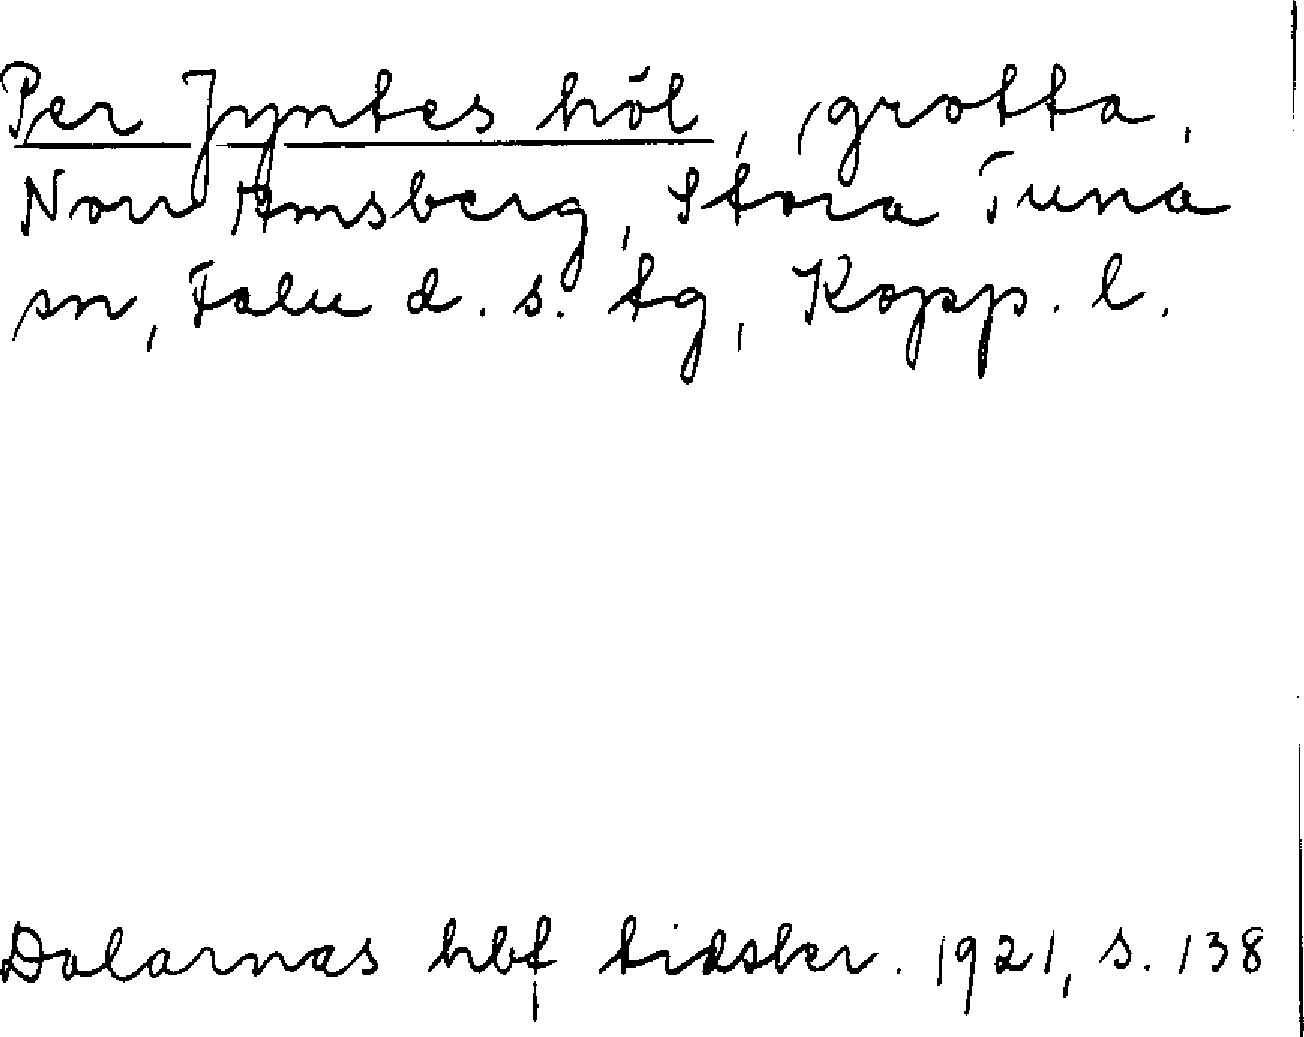 Per Jyntes höl, grotta,
Norr Amsberg, Stora Tuna
sn, Falu d. s. tg, Kopp. l.
Dalarnas hbf tidskr. 1921, s. 138